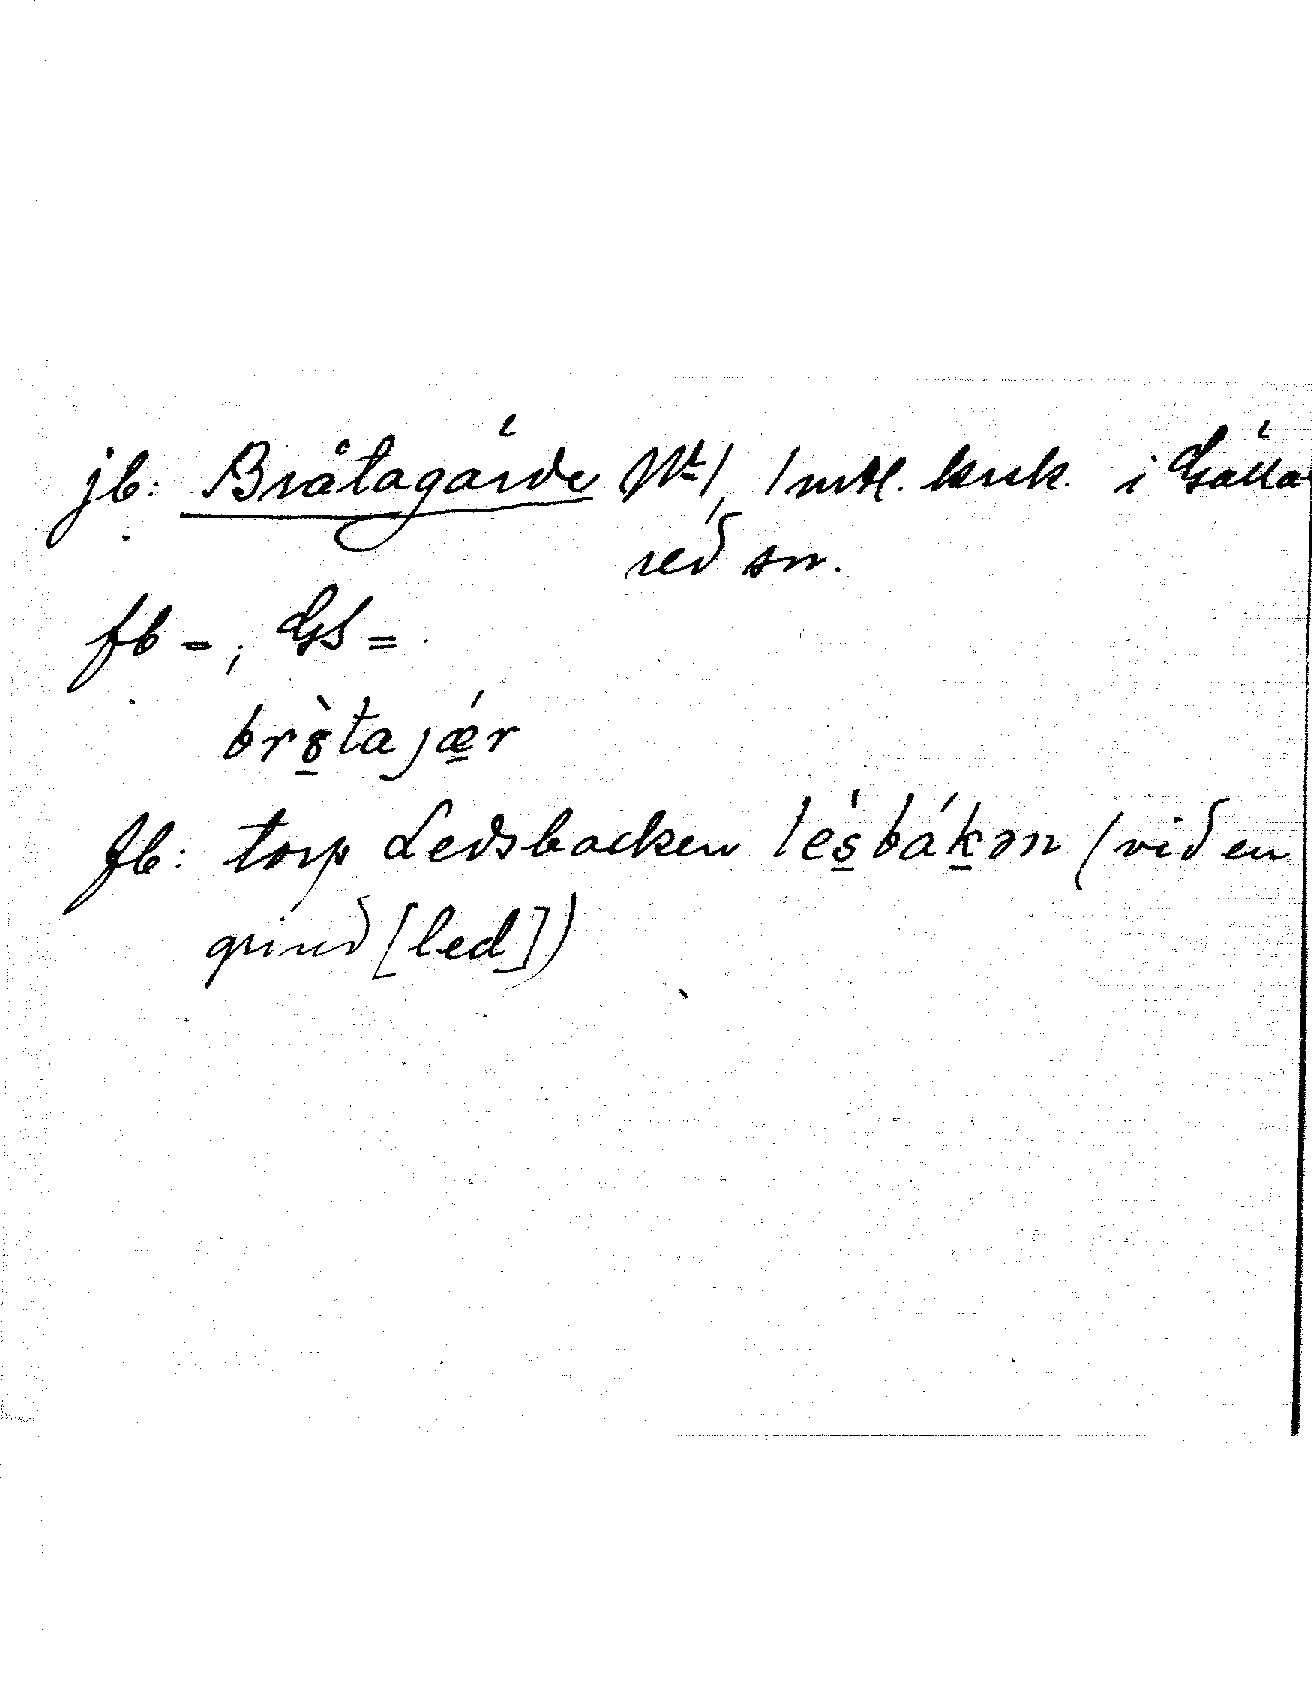 jb: Bråtagärde Nr 1, 1 mtl. krsk. i Gälla
red sn.
fb =; GS =
brò̱tajǽ̱r
fb: torp Ledsbacken lés̱báḵən (vid en
grind [led])